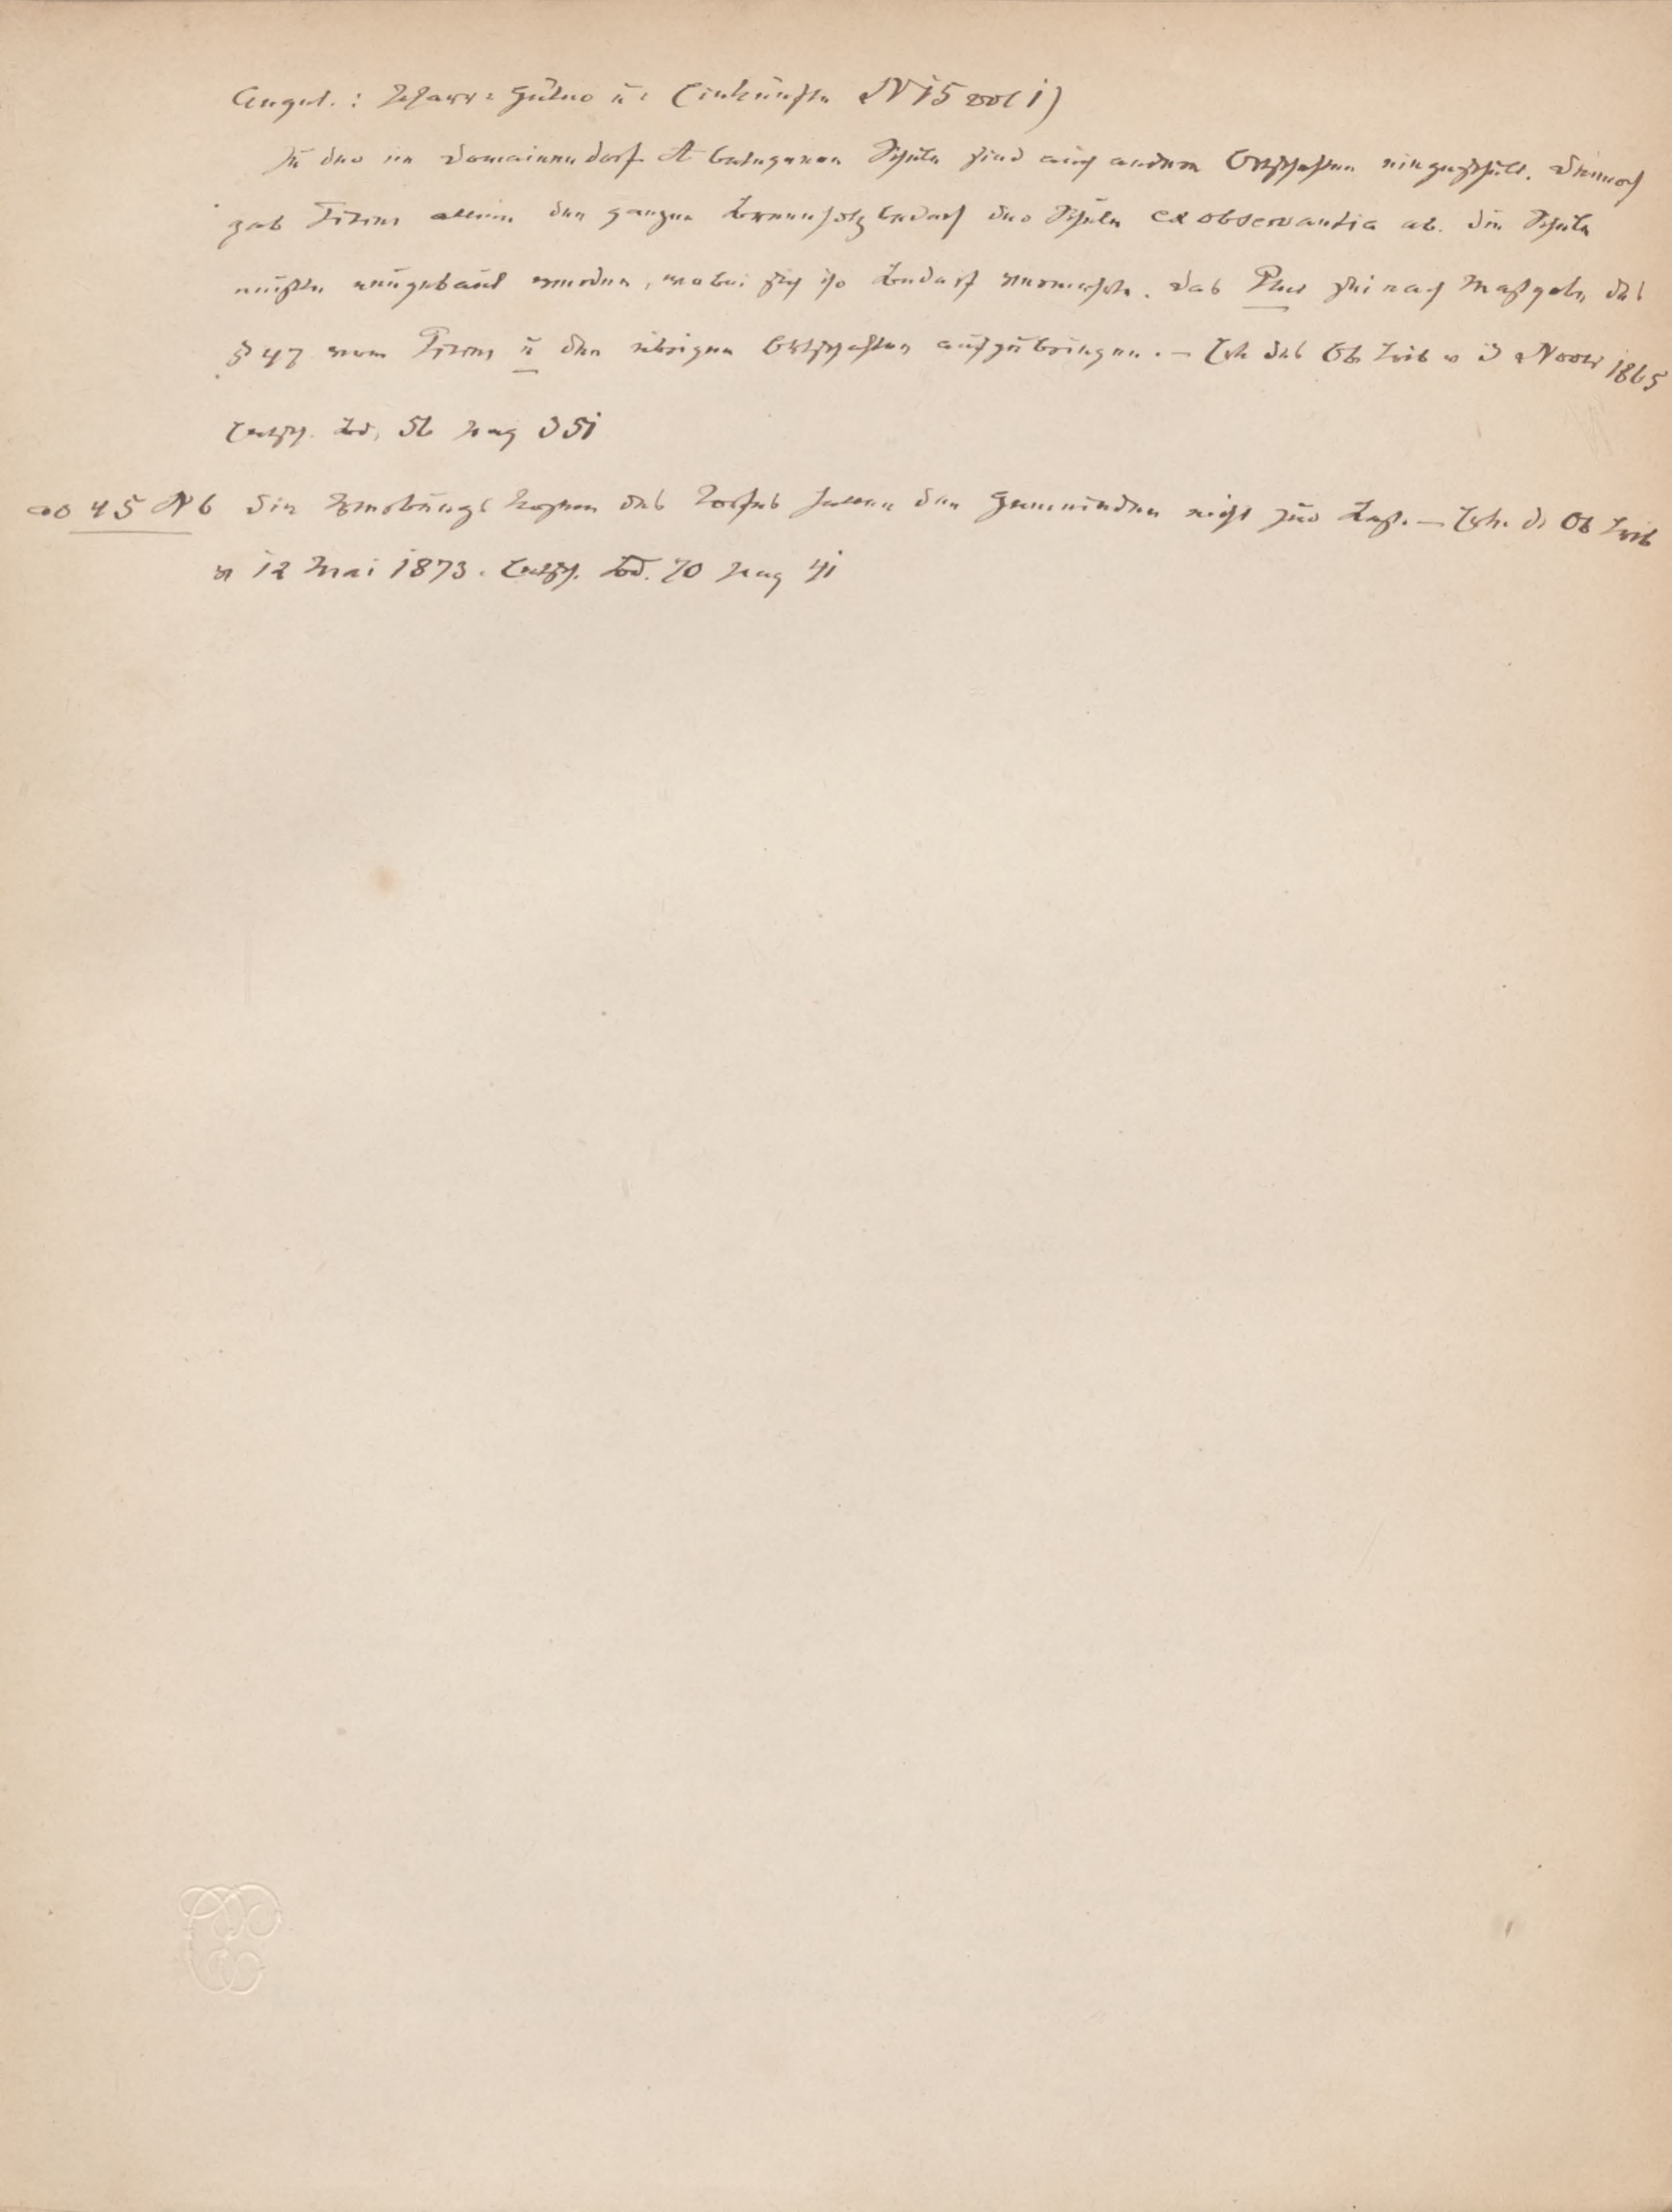 Angel.: Pfarr-Güter u: Einkünfte N 15 vol 1)
Zu der im Domainendorf A belegenen Schule sind auch andere Ortschaften eingeschult. Dennoch
gab Fiskus allein den ganzen Brennholzbedarf der Schule ex observantia ab. Die Schule
mußte neugebaut werden, wobei sich ihr Bedarf vermehrte. Das Plus sei nach Maßgabe des
§ 47 vom Fiskus u den übrigen Ortschaften aufzubringen. – Erk des Ob Trib v 3 Novbr 1865
Entsch. Bd. 56 pag 351
ad 45 N 6 Die Werbungskosten des Torfes fallen den Gemeinden nicht zur Last. – Erk. d. Ob Trib
v 12 Mai 1873. Entsch. Bd. 70 pag 41